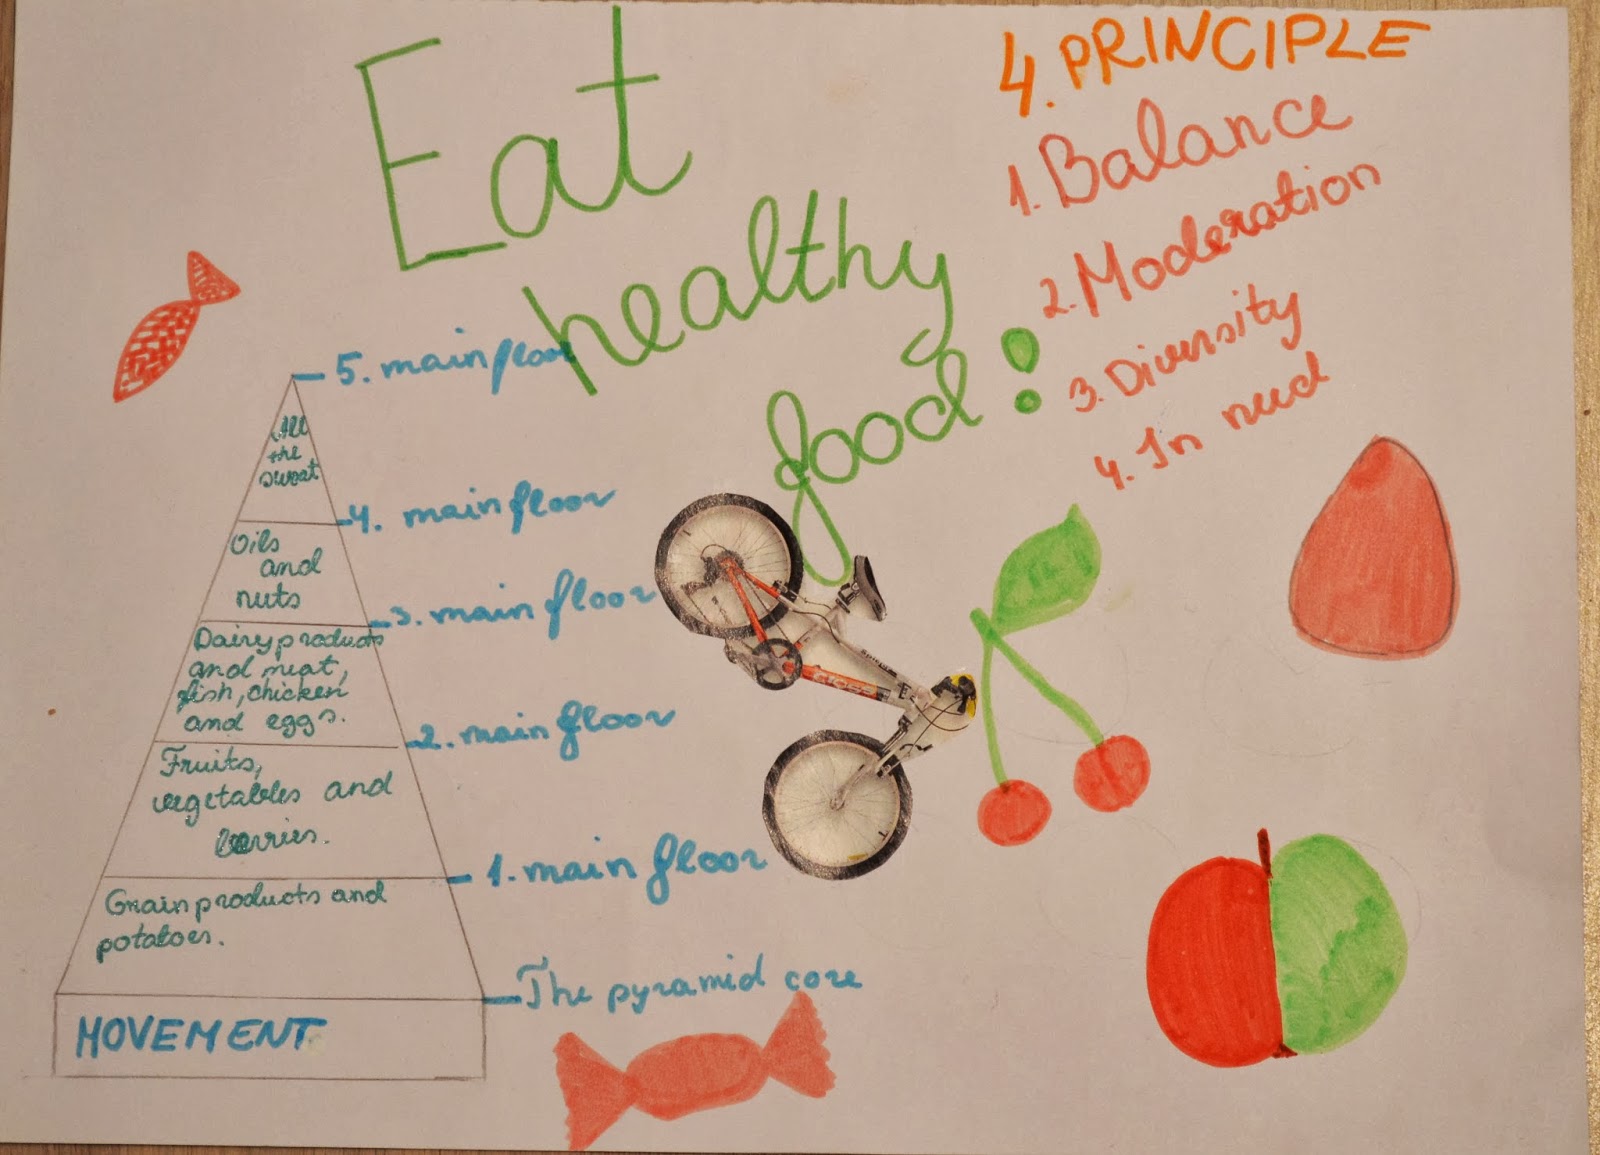 Eat
healthy
food!
4. PRINCIPLE
1. Balance
2. Moderation
3. Diversity
4. In need
5. main floor
All
the
sweat
4. main floor
Oils
and
nuts
3. main floor
Dairy products
and meat,
fish, chicken
and eggs.
2. main floor
Fruits,
vegetables and
berries.
1. main floor
Grain products and
potatoes.
The pyramid core
MOVEMENT
CROSS